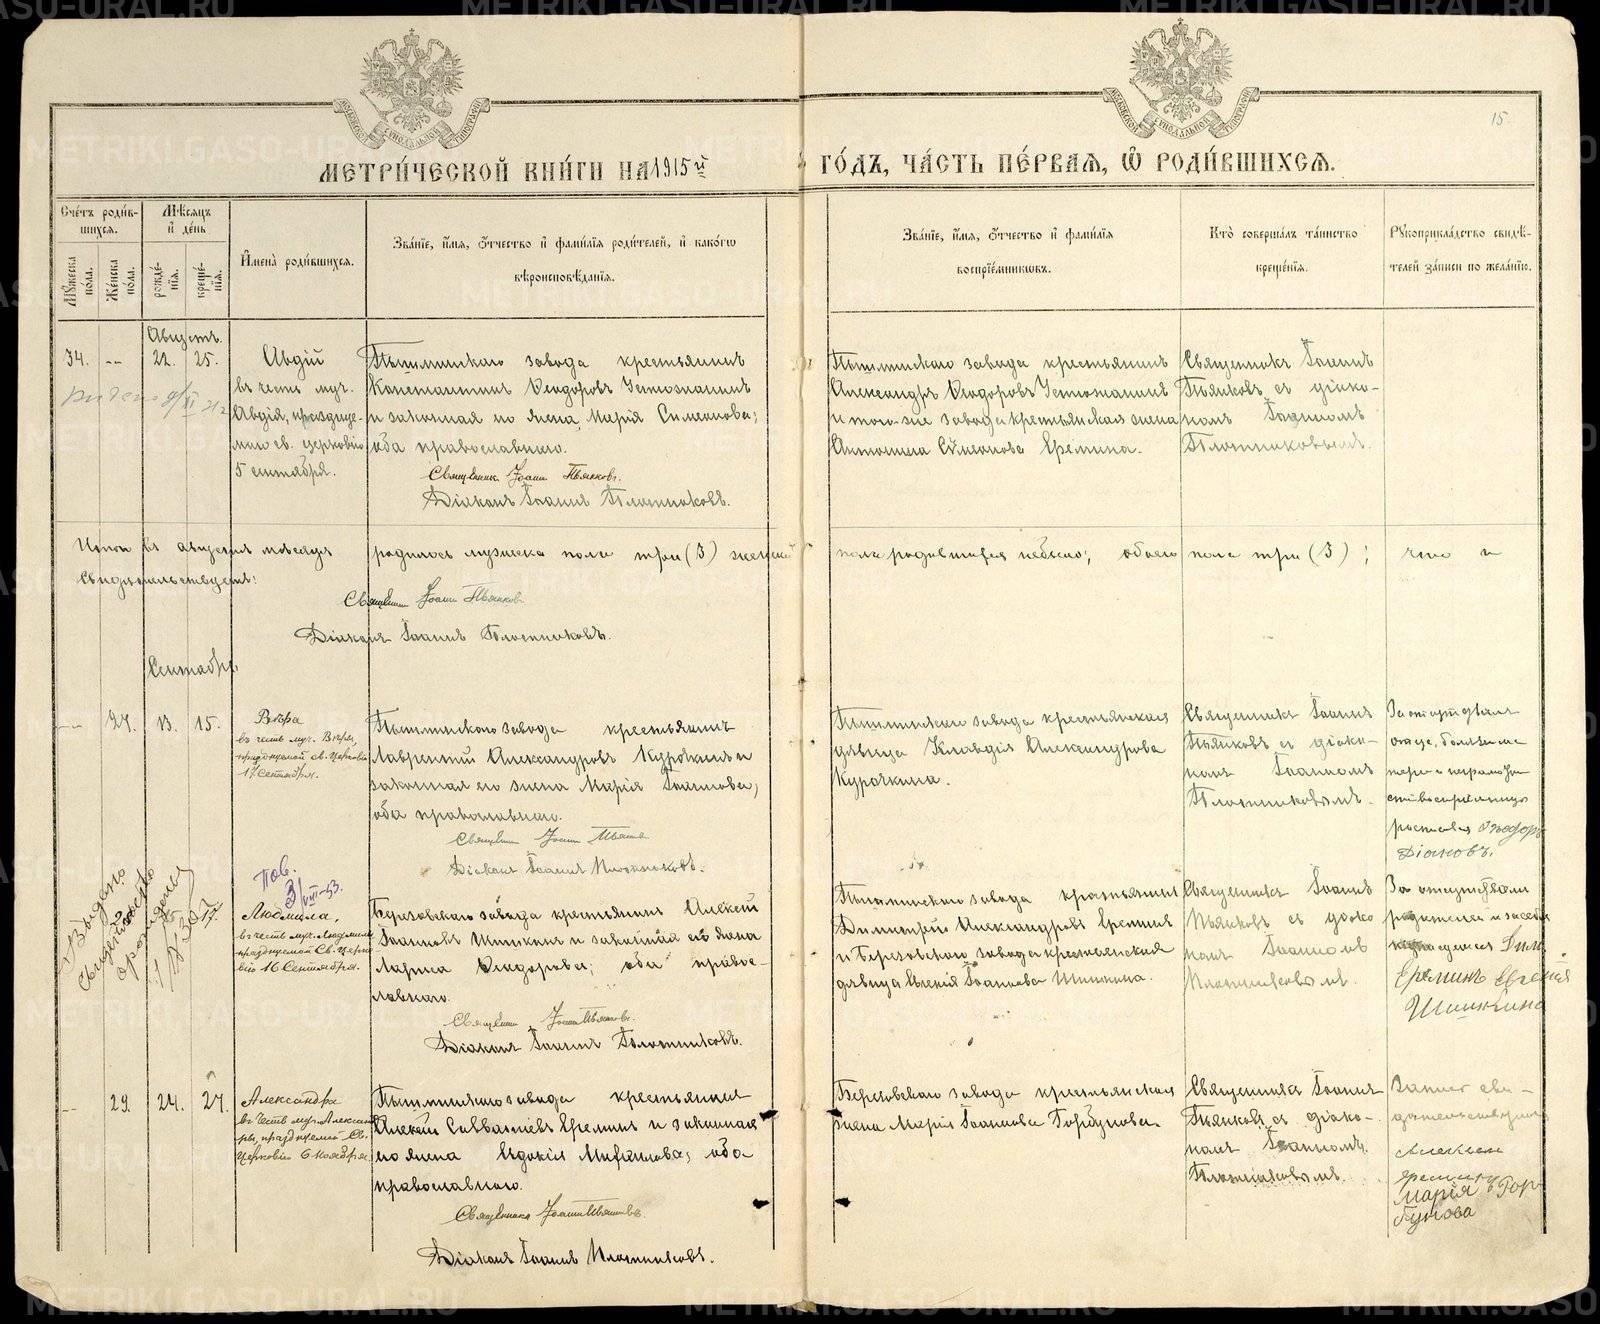 МЕТРИ́ЧЕСКОЙ КНИ́ГИ НА 1915й ГО́ДЪ, ЧА́СТЬ ПЕ́РВАЯ, Ѡ РОДИ́ВШИХСЯ.
15
Сче́тъ роди́в-
шихся.
Му́жеска по́ла.
Же́нска по́ла.
Мѣ́сяцъ
и де́нь
рожде́-
нія.
креще́-
нія.
Имена̀ роди́вшихся.
Зва́ніе, и́мя, о́тчество и фами́лія роди́телей, и како́гѡ
вѣроисповѣ́данія.
Зва́ніе, и́мя, о́тчество и фами́лія
воспріе́мниковъ.
Кто̀ соверша́лъ та́инство
креще́нія.
Рукоприкла́дство свидѣ́-
телей за́писи по жела́нію.
Августъ.
34. -- 22. 25.
Авдій
въ честь муч.
Авдія, празднуе-
маго св. церковію
5 сентября.
Пышминскаго завода крестьянинъ
Константинъ Ѳеодоровъ Устюжанинъ
и законная его жена, Марія Симеонова;
оба православнаго.
Священникъ Іоаннъ Пьянковъ.
Діаконъ Іоаннъ Плотниковъ.
Пышминскаго завода крестьянинъ
Александръ Ѳеодоровъ Устюжанинъ
и того-же завода крестьянская жена
Антонина Симеонова Еремина.
Священникъ Іоаннъ
Пьянковъ съ діако-
номъ Іоанномъ
Плотниковымъ.
Итого въ августѣ мѣсяцѣ родилось мужеска пола три (3) женска пола родившихся не было; обоего пола три (3); что и
свидѣтельствуемъ:
Священникъ Іоаннъ Пьянковъ
Діаконъ Іоаннъ Плотниковъ.
Сентябрь
-- 27. 13. 15.
Вѣра
въ честь муч. Вѣры,
празднуемой св. Церковію
17 Сентября.
Пышминскаго завода крестьянинъ
Лаврентій Александровъ Курочкинъ и
законная его жена Марія Іоаннова,
оба православнаго.
Священникъ Іоаннъ Пьянковъ
Діаконъ Іоаннъ Плотниковъ.
Пышминскаго завода крестьянская
дѣвица Клавдія Александрова
Курочкина.
Священникъ Іоаннъ
Пьянковъ съ діако-
номъ Іоанномъ
Плотниковымъ.
За отсутствіемъ
отца,
Ѳеодоръ
Діаковъ.
Выдано
свидетельство
о рождении
Пов.
3/VIII-53.
17.
Людмила,
въ честь муч. Людмилы
празднуемой Св. Церко-
вію 16 Сентября.
Березовскаго завода крестьянинъ Алексѣй
Іоанновъ Шишкинъ и законная его жена
Лариса Ѳеодорова; оба правос-
лавнаго.
Священникъ Іоаннъ Пьянковъ.
Діаконъ Іоаннъ Плотниковъ.
Пышминскаго завода крестьянинъ
Димитрій Александровъ Ереминъ
и Березовскаго завода крестьянская
дѣвица Евгенія Іоаннова Шишкина.
Священникъ Іоаннъ
Пьянковъ съ діако-
номъ Іоанномъ
Плотниковымъ.
За отсутствіемъ
родителей и
Дим.
Ереминъ Евгенія
Шишкина
-- 29. 24. 27.
Александра
въ честь муч. Александ-
ры, празднуемой Св.
Церковію 6 ноября.
Пышминскаго завода крестьянинъ
Алексѣй Савватіевъ Ереминъ и законная
его жена Евдокія Михаилова; оба
православнаго.
Священникъ Іоаннъ Пьянковъ.
Діаконъ Іоаннъ Плотниковъ.
Березовскаго завода крестьянская
жена Марія Іоаннова Горбунова.
Священникъ Іоаннъ
Пьянковъ съ діако-
номъ Іоанномъ
Плотниковымъ.
Запись сви-
дѣтельствуютъ
Алексѣй
Ереминъ
Марія Гор-
бунова
METRIKI.GASO-URAL.RU